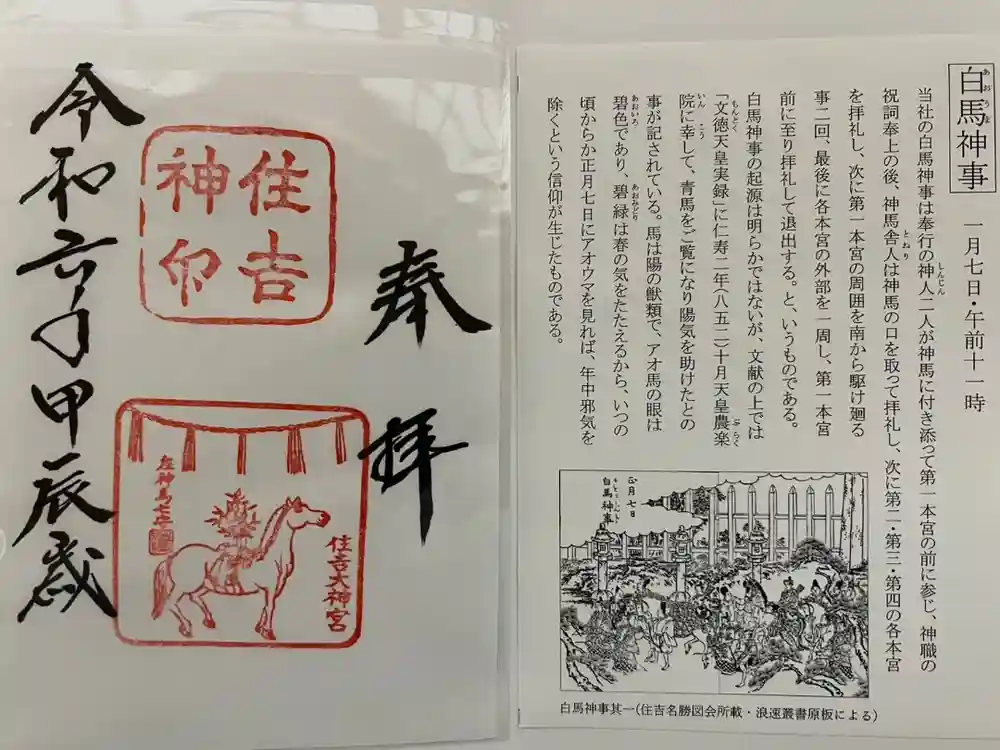 奉拝
住吉
神印
住吉大神宮
令和六年甲辰歳
白馬神事
あおうま
一月七日・午前十一時
当社の白馬神事は奉行の神人二人が神馬に付き添って第一本宮の前に参じ、神職の
しんじん
祝詞奉上の後、神馬舎人は神馬の口を取って拝礼し、次に第二・第三・第四の各本宮
とねり
を拝礼し、次に第一本宮の周囲を南から駆け廻る
事二回、最後に各本宮の外部を一周し、第一本宮
前に至り拝礼して退出する。と、いうものである。
白馬神事の起源は明らかではないが、文献の上では
「文徳天皇実録」に仁寿二年(八五二)十月天皇農楽
もんとく
ぶらく
院に幸して、青馬をご覧になり陽気を助けたとの
いん
こう
事が記されている。馬は陽の獣類で、アオ馬の眼は
碧色であり、碧緑は春の気をたたえるから、いつの
あおいろ
あおみどり
頃からか正月七日にアオウマを見れば、年中邪気を
除くという信仰が生じたものである。
正月七日
白馬神事
白馬神事其一(住吉名勝図会所載・浪速叢書原板による)